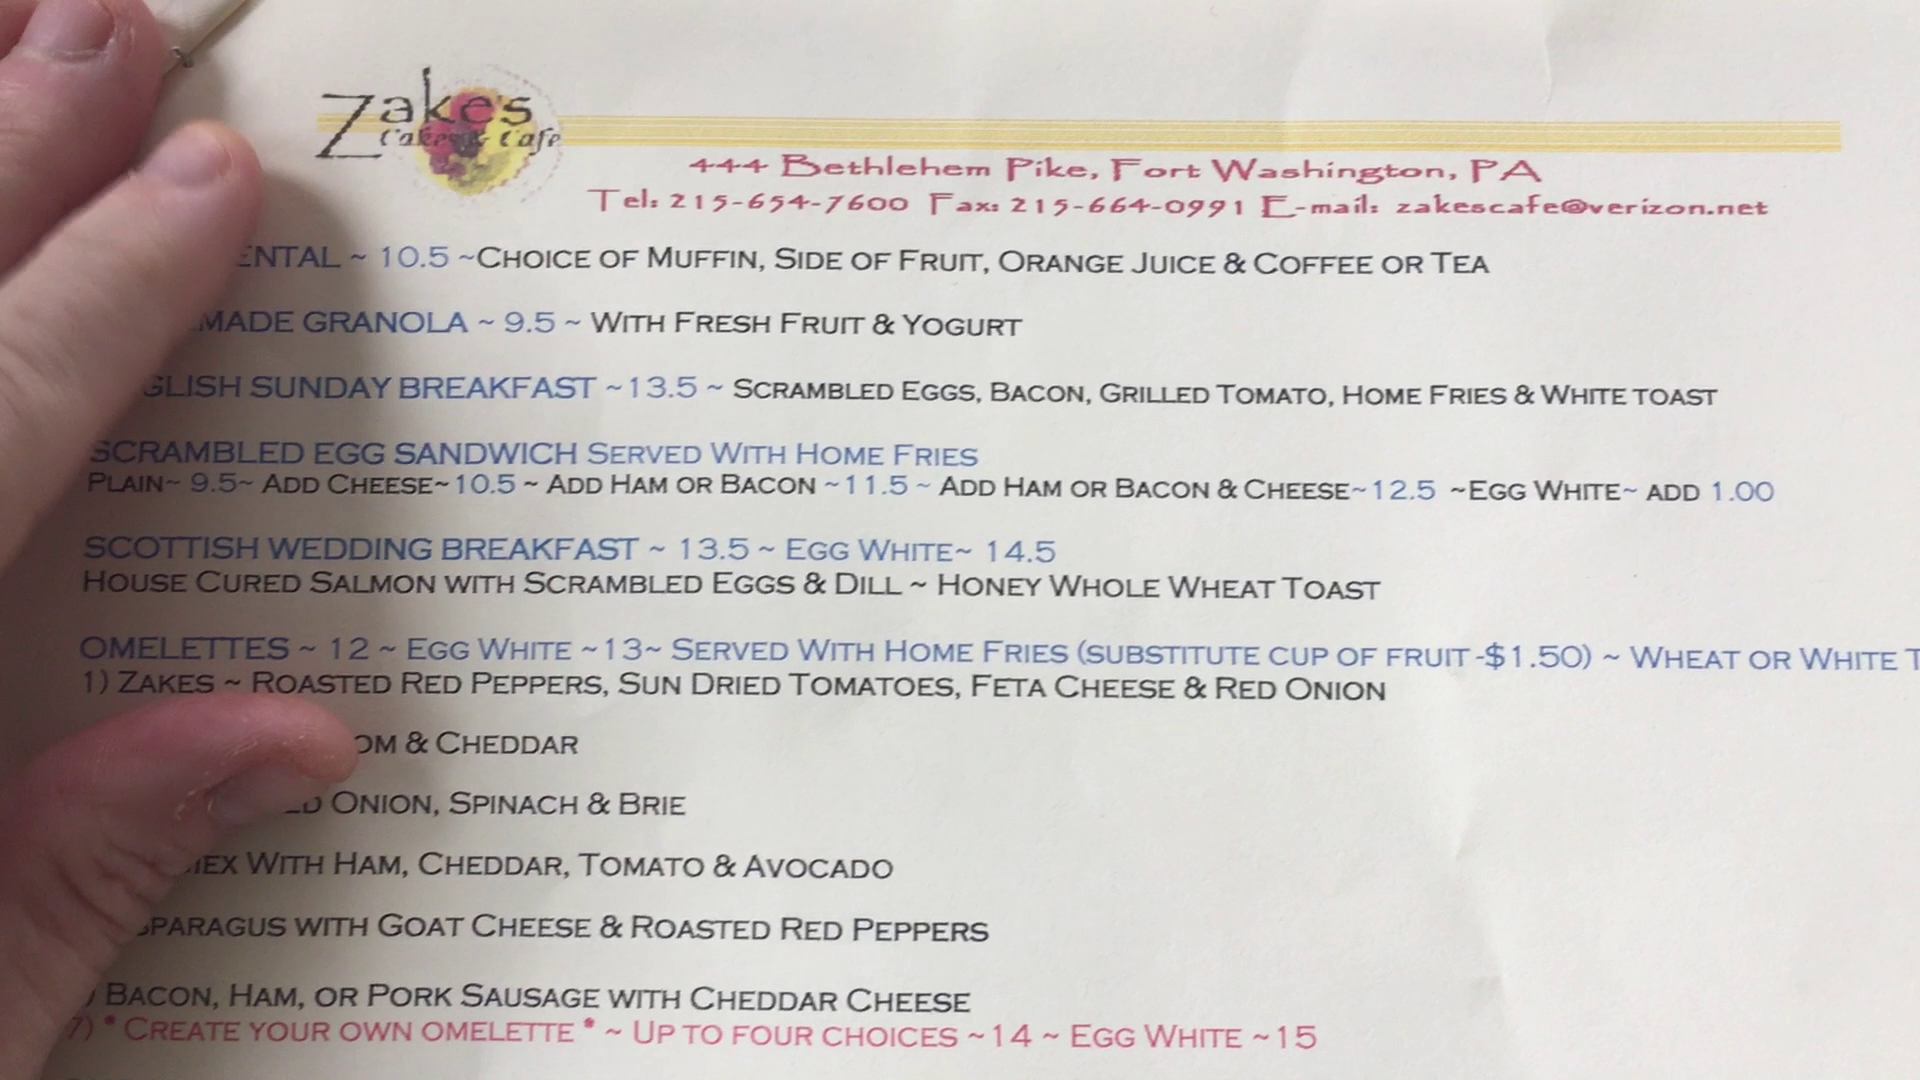 Zake's
Cakes & Cafe
444 Bethlehem Pike, Fort Washington, PA
Tel: 215-654-7600 Fax: 215-664-0991 E-mail: zakescafe@verizon.net
~ 10.5 ~CHOICE OF MUFFIN, SIDE OF FRUIT, ORANGE JUICE & COFFEE OR TEA
MADE GRANOLA ~ 9.5 ~ WITH FRESH FRUIT & YOGURT
SUNDAY BREAKFAST ~13.5 ~ SCRAMBLED EGGS, BACON, GRILLED TOMATO, HOME FRIES & WHITE TOAST
SCRAMBLED EGG SANDWICH SERVED WITH HOME FRIES
PLAIN~ 9.5~ ADD CHEESE~10.5 ~ ADD HAM OR BACON ~11.5 ~ ADD HAM OR BACON & CHEESE~12.5 ~EGG WHITE~ ADD 1.00
SCOTTISH WEDDING BREAKFAST ~ 13.5 ~ EGG WHITE~ 14.5
HOUSE CURED SALMON WITH SCRAMBLED EGGS & DILL ~ HONEY WHOLE WHEAT TOAST
OMELETTES ~ 12 ~ EGG WHITE ~13~ SERVED WITH HOME FRIES (SUBSTITUTE CUP OF FRUIT -$1.50) ~ WHEAT OR WHITE
1) ZAKES ~ ROASTED RED PEPPERS, SUN DRIED TOMATOES, FETA CHEESE & RED ONION
& CHEDDAR
ONION, SPINACH & BRIE
WITH HAM, CHEDDAR, TOMATO & AVOCADO
WITH GOAT CHEESE & ROASTED RED PEPPERS
) BACON, HAM, OR PORK SAUSAGE WITH CHEDDAR CHEESE
7) * CREATE YOUR OWN OMELETTE * ~ UP TO FOUR CHOICES ~14 ~ EGG WHITE ~15